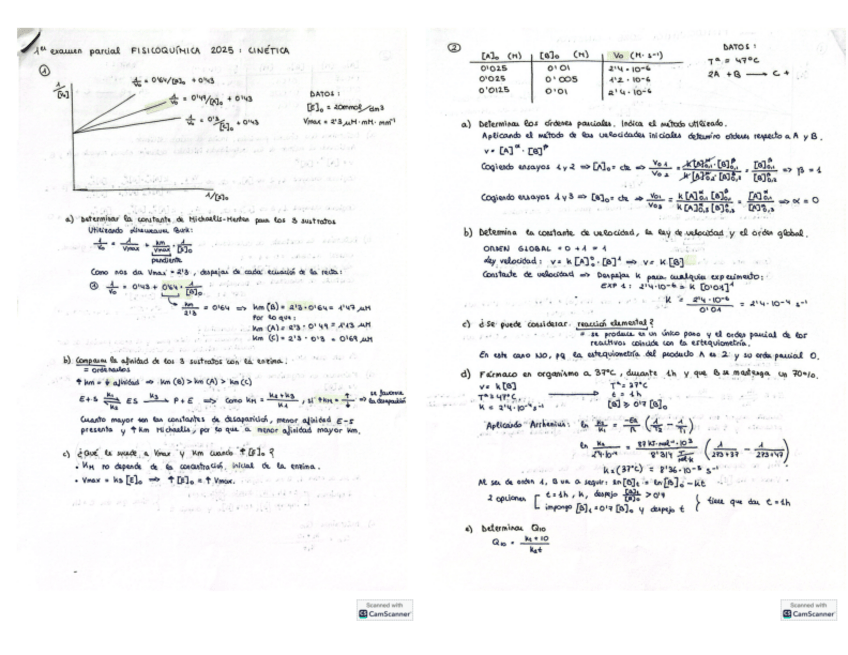 1er examen parcial FISICOQUÍMICA 2025: CINÉTICA
①
1/V0 = 0'64/[A]0 + 0'43
1/[V0]
1/V0 = 0'49/[A]0 + 0'43
1/V0 = 0'3/[S]0 + 0'43
DATOS:
[E]0 = 20mmol/dm3
Vmax = 2'3 μM · mM · mm-1
1/[A]0
a) Determinar la constante de Michaelis-Menten para los 3 sustratos
Utilizando Lineweaver Burk:
1/V0 = 1/Vmax + km/Vmax · 1/[S]0
pendiente
Como nos da Vmax = 2'3, despejas de cada ecuación de la recta:
① 1/V0 = 0'43 + 0'64 · 1/[B]0
km/2'3 = 0'64 => km (B) = 2'3 · 0'64 = 1'47 μM
Por lo que:
km (A) = 2'3 · 0'49 = 1'13 μM
km (C) = 2'3 · 0'3 = 0'69 μM
b) Compara la afinidad de los 3 sustratos con la enzima.
= ordenarlos
↑ km = ↓ afinidad => km (B) > km (A) > km (C)
E + S ⇌ ES → P + E => como KM = k2 + k3 / k1, si ↑ km = ↑/↓ => se favorece la desaparición
Cuanto mayor son las constantes de desaparición, menor afinidad E-S
presenta y ↑ km Michaelis, por lo que a menor afinidad mayor km.
c) ¿Qué le sucede a Vmax y KM cuando ↑ [E]0?
• KM no depende de la concentración inicial de la enzima.
• Vmax = k3 [E]0 => ↑ [E]0 = ↑ Vmax.
②
[A]0 (M) [B]0 (M) V0 (M · s-1)
0'025 0'01 2'4 · 10-6
0'025 0'005 1'2 · 10-6
0'0125 0'01 2'4 · 10-6
DATOS:
Tª = 47ºC
2A + B → C +
a) Determinar los órdenes parciales. Indica el método utilizado.
Aplicando el método de las velocidades iniciales determino ordenes respecto a A y B.
v = [A]α · [B]β
Cogiendo ensayos 1 y 2 => [A]0 = cte => V0 1/V0 2 = k[A]α0,1 [B]β0,1 / k[A]α0,2 [B]β0,2 = [B]β0,1 / [B]β0,2 => β = 1
Cogiendo ensayos 1 y 3 => [B]0 = cte => V01/V03 = k[A]α0,1 [B]β0,1 / k[A]α0,3 [B]β0,3 = [A]α0,1 / [A]α0,3 => α = 0
b) Determina la constante de velocidad, la ley de velocidad y el orden global.
ORDEN GLOBAL = 0 + 1 = 1
Ley velocidad: v = k [A]0 · [B]1 => v = k [B]
Constante de velocidad => Despejas k para cualquier experimento:
EXP 1: 2'4 · 10-6 = k [0'01]1
K = 2'4 · 10-6 / 0'01 = 2'4 · 10-4 s-1
c) ¿Se puede considerar reacción elemental?
= se produce en un único paso y el orden parcial de los
reactivos coincide con la estequiometría.
En este caso NO, pq la estequiometría del producto A es 2 y su orden parcial 0.
d) Fármaco en organismo a 37ºC, durante 1h y que B se mantenga un 70%.
v = k [B] Tª = 37ºC
Tª = 47ºC → t = 1h
K = 2'4 · 10-4 s-1 [B] ≥ 0'7 [B]0
Aplicando Arrhenius: ln k2/k1 = -Ea/R (1/T2 - 1/T1)
ln k2/2'4·10-4 = - 87 kJ·mol-1 · 103 / 8'314 J/mol·k (1/273+37 - 1/273+47)
k = (37ºC) = 8'36 · 10-5 s-1
Al ser de orden 1, B va a seguir: ln[B]t = ln[B]0 - kt
2 opciones [ t = 1h, k, despejo [B]t/[B]0 > 0'7
impongo [B]t = 0'7 [B]0 y despejo t } tiene que dar t = 1h
e) Determinar Q10
Q10 = kt + 10 / kt
Scanned with
CS CamScanner
Scanned with
CS CamScanner